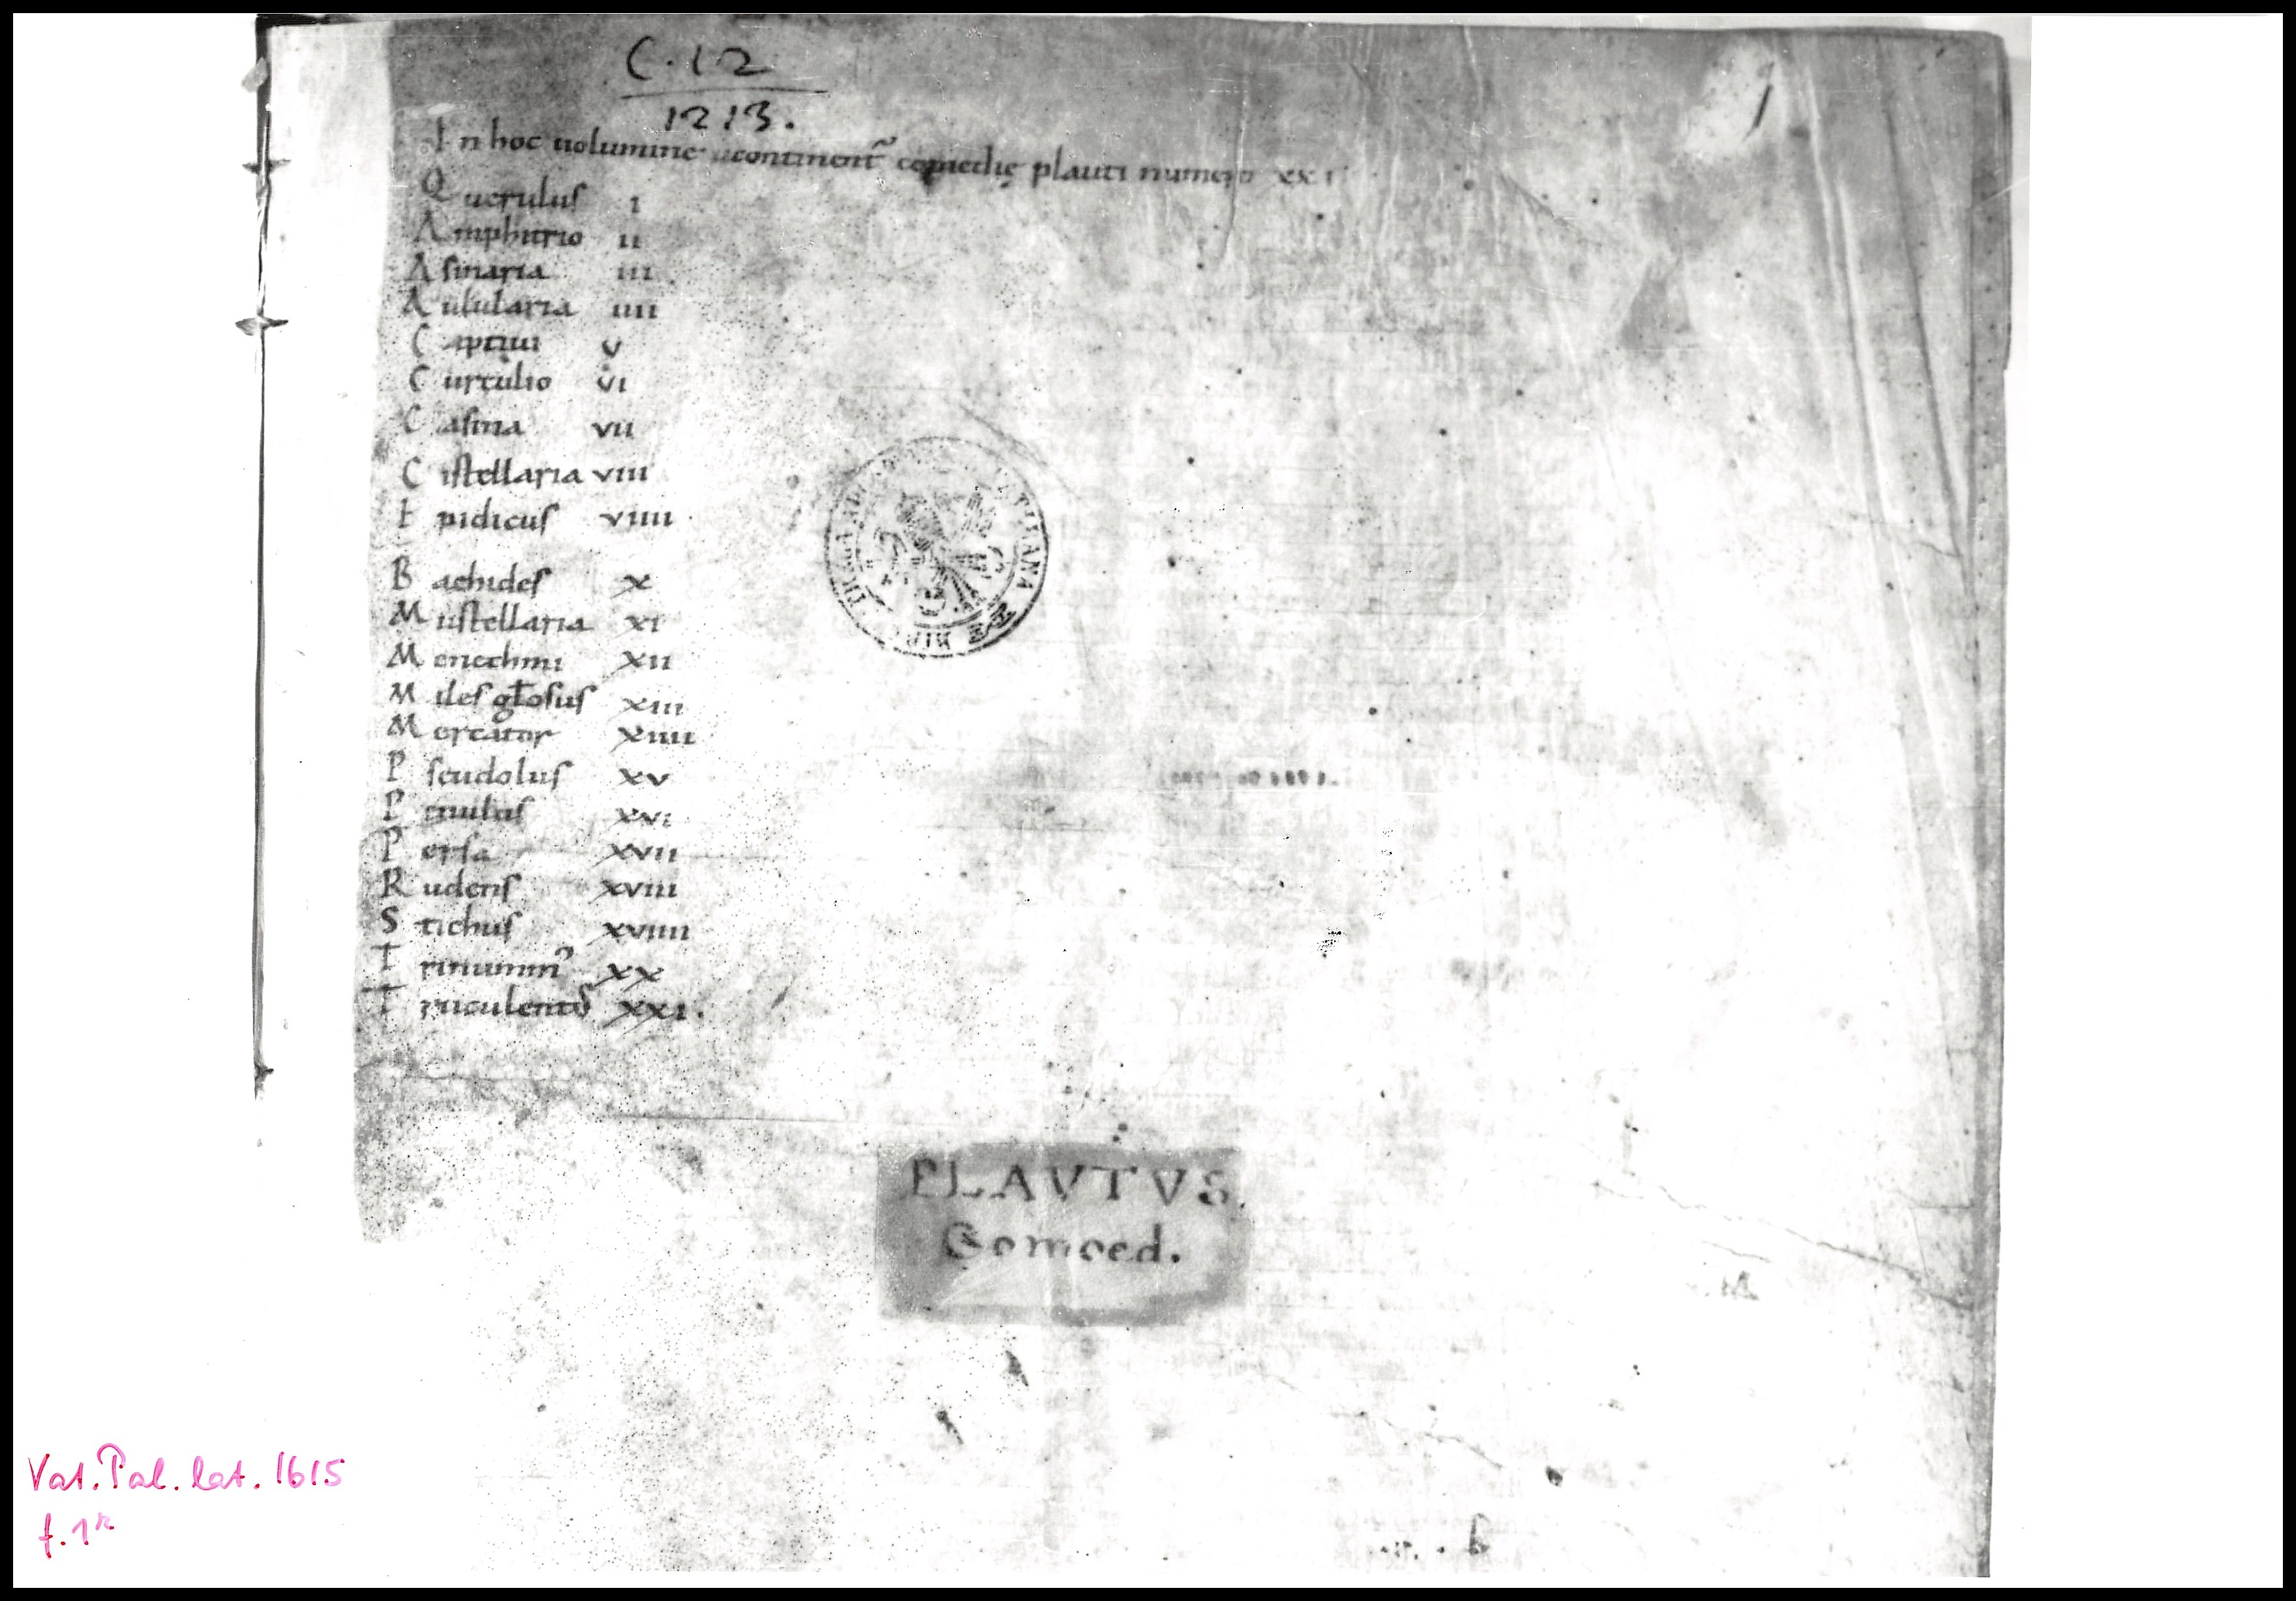 C.12
1213.
1
In hoc uolumine continent̃ comedię plauti numero xxi
Querulus i
Amphitrio ii
Asinaria iii
Aulularia iiii
Captiui v
Curculio vi
Casina vii
Cistellaria viii
Epidicus viiii
Bachides x
Mustellaria xi
Menechmi xii
Miles gl̄osus xiii
Mercator xiiii
Pseudolus xv
Penulus xvi
Persa xvii
Rudens xviii
Stichus xviiii
Trinumm᾽ xx
Truculentus xxi.
PLAVTVS.
Comoed.
Vat. Pal. lat. 1615
f. 1r